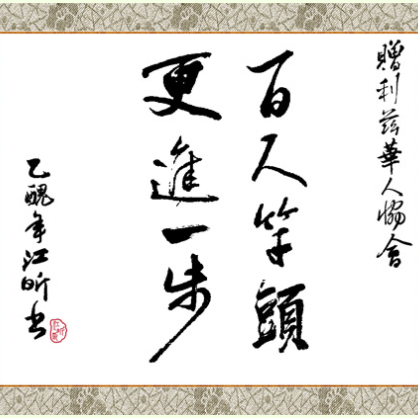 贈利兹華人協會
百尺竿頭
更進一步
乙醜年江昕書